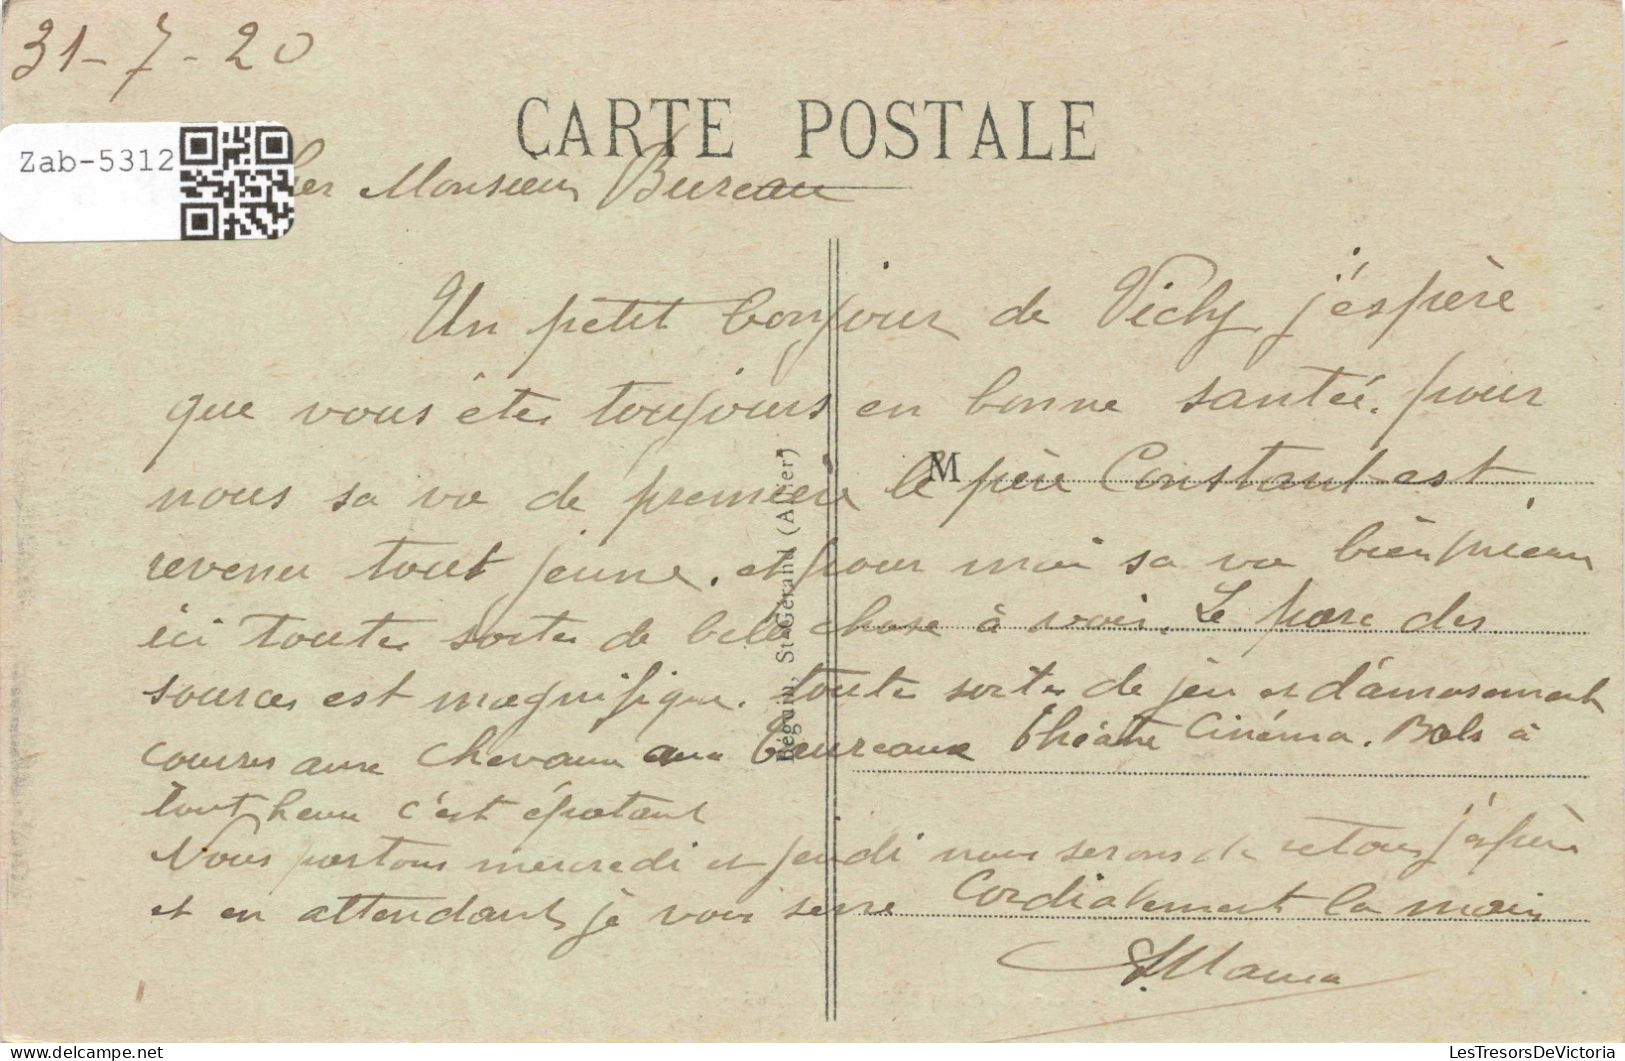 31-7-20
CARTE POSTALE
Zab-5312
Monsieur Bureau
Un petit bonjour de Vichy j'espère
que vous êtes toujours en bonne santée. pour
nous sa va de première le père Constant est
M
revenu tout jeune. et pour moi sa va bien
ici toutes sortes de belle chose à voir. Le parc des
sources est magnifique. toutes sortes de jeu et d'amusement
courses aux chevaux aux Taureaux théâtre Cinéma. Bals à
tout heure c'est épatant
Nous partons mercredi et jeudi nous serons de retour j'espère
et en attendant je vous serre Cordialement la main
Béguin, St-Gérand (Allier)
LesTresorsDeVictoria
delcampe.net